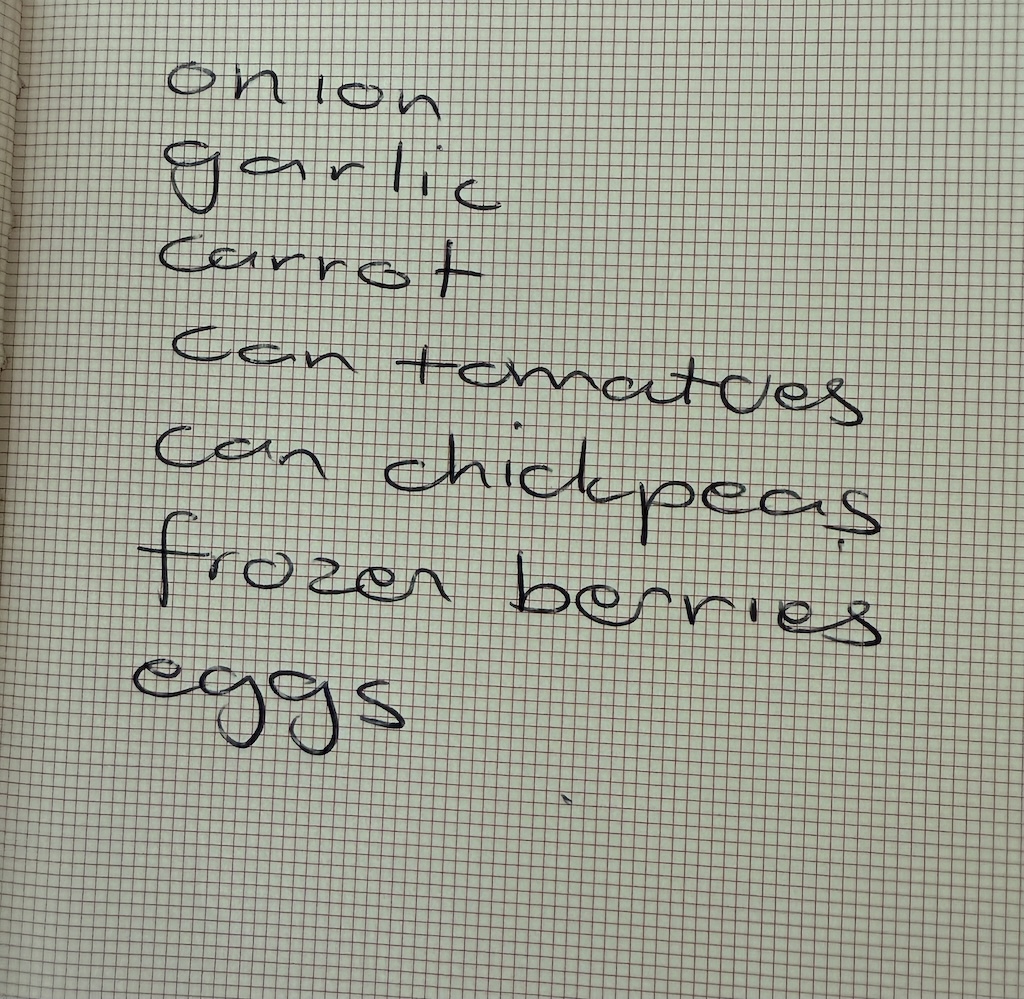 onion
garlic
carrot
can tomatoes
can chickpeas
frozen berries
eggs